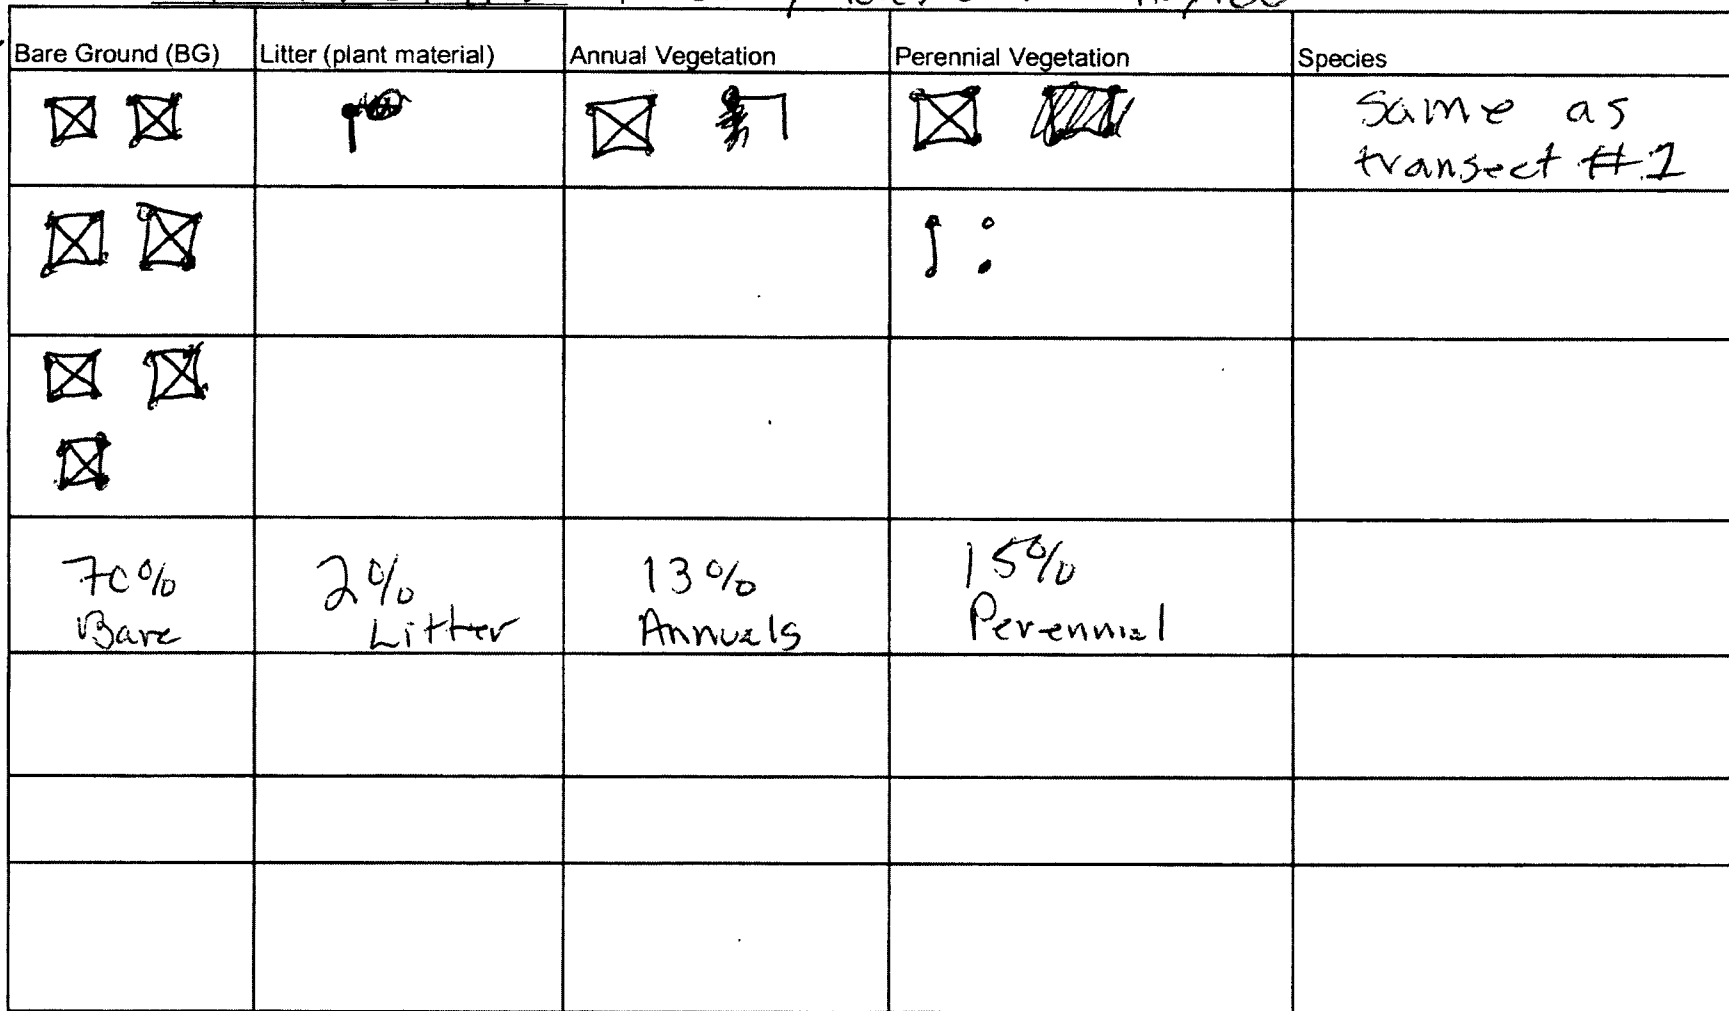 Bare Ground (BG)
Litter (plant material)
Annual Vegetation
Perennial Vegetation
Species
Same as
transect #1
70%
Bare
2%
Litter
13%
Annuals
15%
Perennial